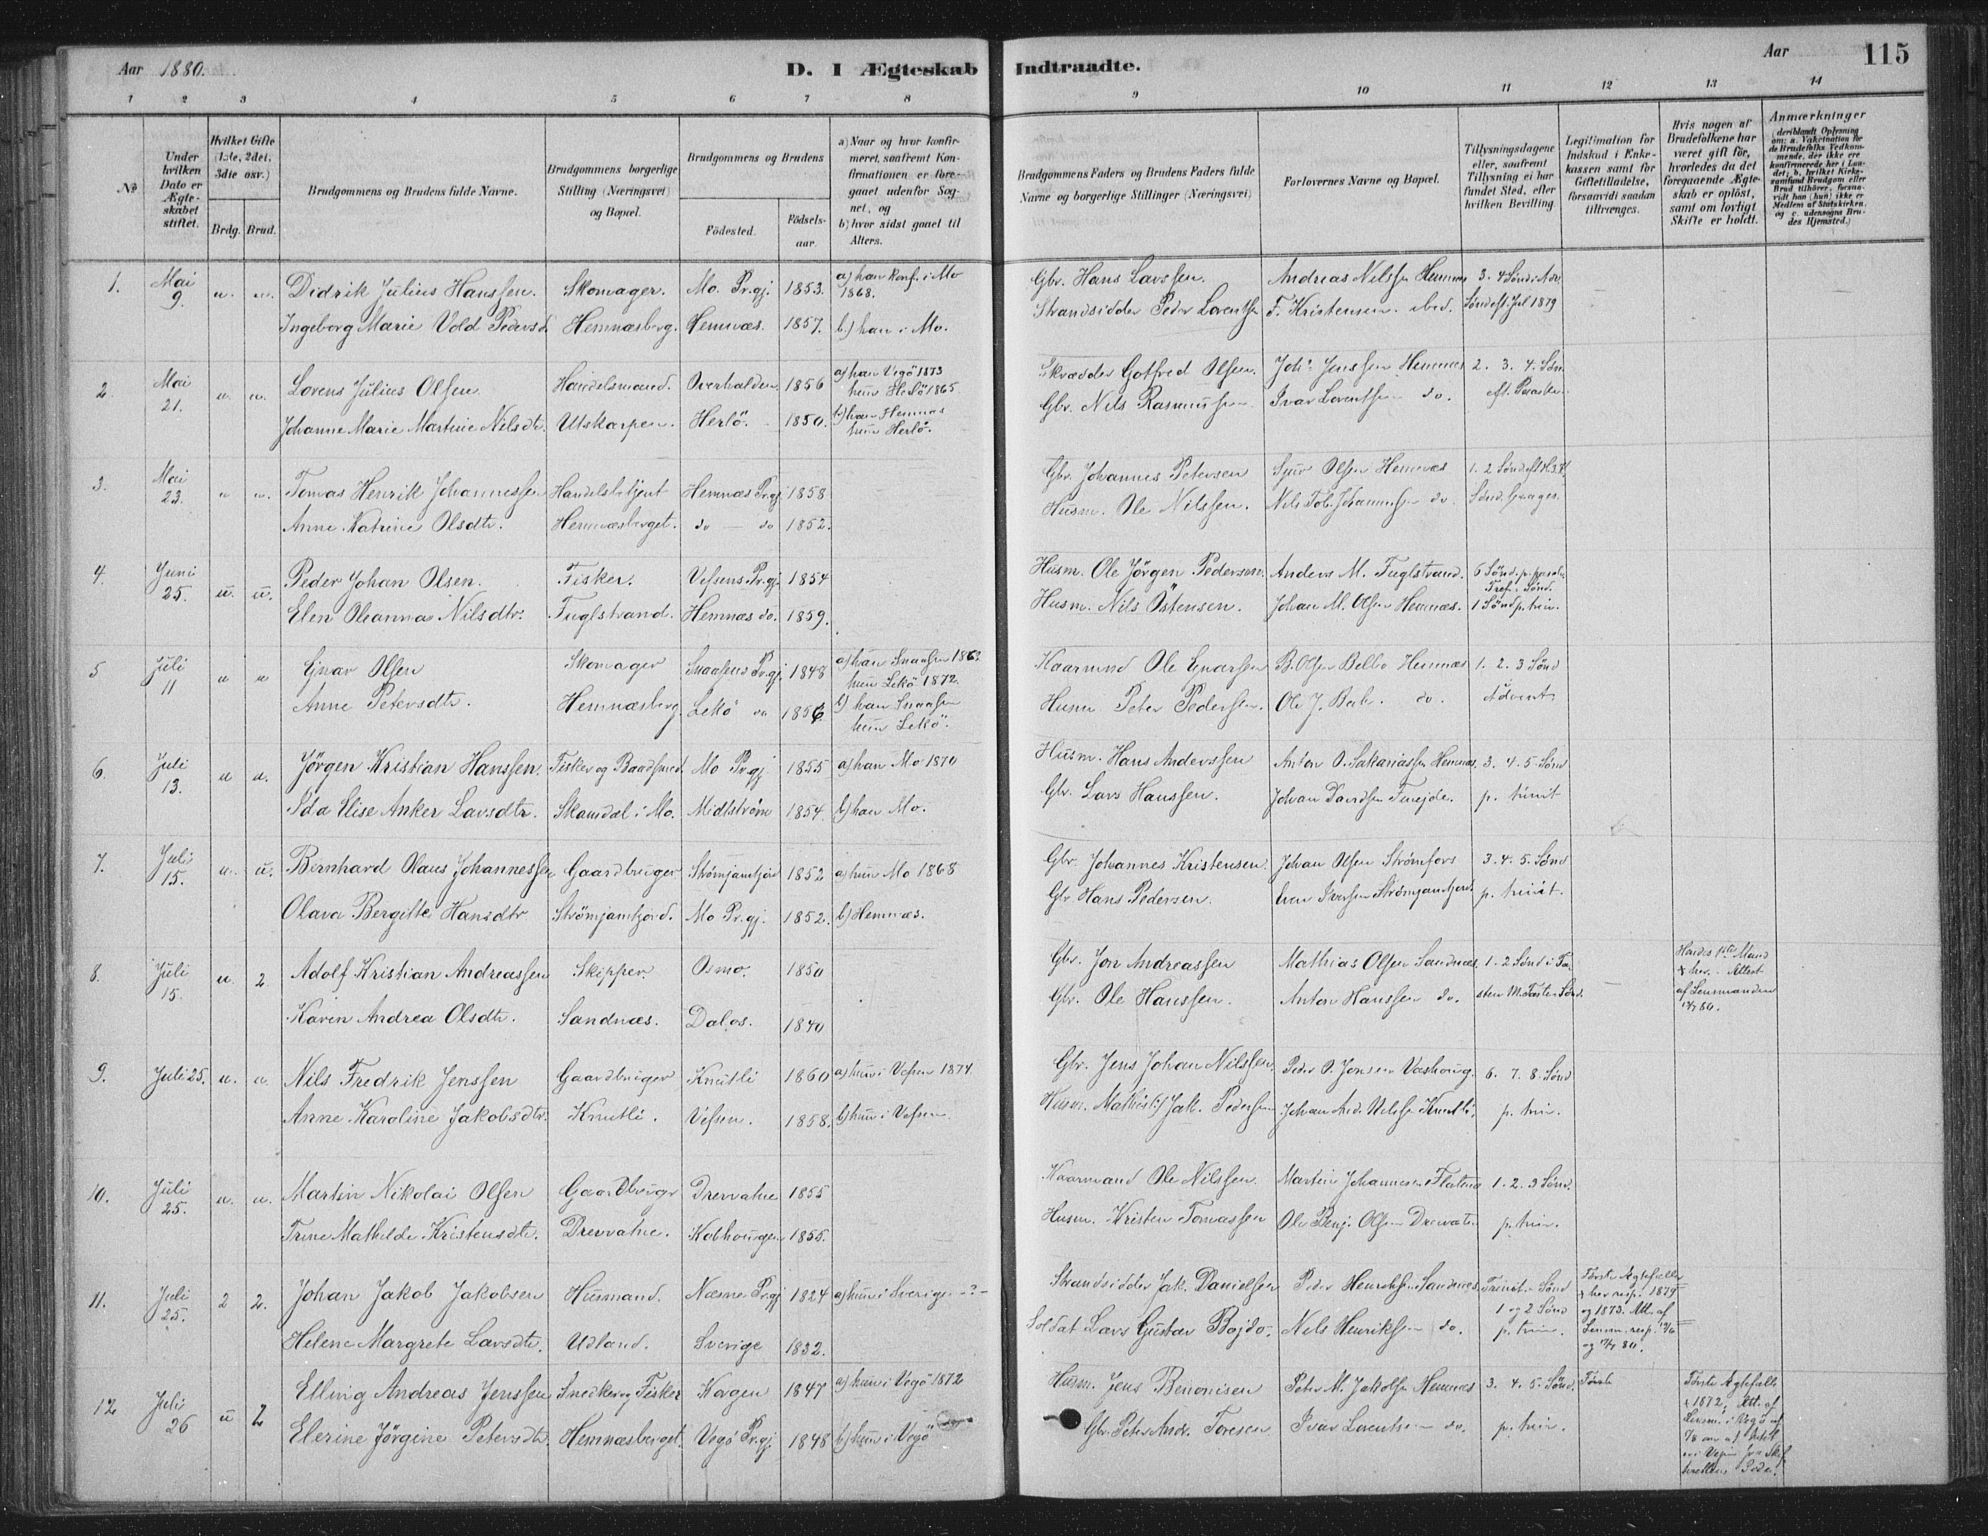 Aar 1880.
D. I Ægteskab Indtraadte.
Aar 115
1 2 3 4 5 6 7 8 9 10 11 12 13 14
No
Under hvilken Dato er Ægteskabet stiftet.
Hvilket Gifte (1ste, 2det, 3die osv.)
Brdg. Brud.
Brudgommens og Brudens fulde Navne.
Brudgommens borgerlige Stilling (Næringsvei) og Bopæl.
Brudgommens og Brudens
Fødested. Fødselsaar.
a) Naar og hvor konfirmeret, saafremt Konfirmationen er foregaaet udenfor Sognet, og
b) hvor sidst gaaet til Alters.
Brudgommens Faders og Brudens Faders fulde Navne og borgerlige Stillinger (Næringsvei)
Forlovernes Navne og Bopæl.
Tillysningsdagene eller, saafremt Tillysning ei har fundet Sted, efter hvilken Bevilling
Legitimation for Indskud i Enkekassen samt for Giftetilladelse, forsaavidt saadan tiltrænges.
Hvis nogen af Brudefolkene har været gift før, hvorledes da det foregaaende Ægteskab er opløst, samt om lovligt Skifte er holdt.
Anmærkninger
1. Mai 9. u. u. Didrik Julius Hanssen. Skomager. Mo Pr.gj. 1853. a) han konf. i Mo 1868. Gbr. Hans Larssen. Andreas Nilssen Hemnæs 3. 4 Sønd i Adv.
Ingeborg Marie Vold Pedersd. Hemnæsberg. Hemnæs. 1857. b.) han i Mo. Strandsidder Peder Lorentsen F. Kristensen ibid. Sønd eft. Jul 1879
2. Mai 21. u. u. Lorens Julius Olsen Handelsmand. Overhalden 1856 a) han Vegö 1873 hun Herlö 1865. Skrædder Gotfred Olsen. Joh. Jenssen Hemnæs 2. 3. 4. Søn
Johanne Marie Martine Nilsdtr. Utskarpen. Herlö. 1850. b) han Hemnæs hun Herlö. Gbr. Nils Rasmussen Ivar Lorentsen do. eft. Paaske
3. Mai 23. u. u. Tomas Henrik Johannessen Handelsbetjent Hemnæs Pr.gj 1858 Gbr. Johannes Petersen Olsen Hemnæs 1. 2 Sønd eft.
Anne Katrine Olsdtr. Hemnæsberget. do – do 1852. Husm. Ole Nilssen. Nils Tob. Johannessen do.
4. Juni 25. u. u. Peder Johan Olsen. Fisker. Vefsens Pr.gj. 1854 Husm. Ole Jörgen Pedersen. Anders M. Fuglstrand. 6 Sønd. p.
Elen Oleanna Nilsdtr. Fuglstrand. Hemnæs do. 1859. Husm. Nils Östensen. Johan M. Olsen Hemnæs. 1 Sønd p. trin.
5 Juli 11 u u Ejnar Olsen Skomager Snaasens Pr.gj. 1848 a) han Snaasen hun Lekö 1872. Kaarmand Ole Ejnarsen B. Olsen Hemnæs 1. 2. 3 Sønd
Anne Petersdtr. Hemnæsberg. Lekö do b) han Snaasen hun Lekö. Husm Peter Pedersen. Ole J. do. Advent
6. Juli 13. u u. Jörgen Kristian Hanssen. Fisker og Baadsmed. Mo Pr.gj. 1855 a) han Mo 1870 Husm. Hans Anderssen Anton O. Sakariassen Hemnæs. 3. 4. 5. Sønd
Ida Elise Anker Larsdtr. Skamdal i Mo. Midtstrøm 1854. b) han Mo. Gbr. Lars Hanssen. Johan Davidsen p. trinit
7. Juli 15. u. u. Bernhard Olaus Johannessen Gaardbruger Strømjamfjord 1852 a) hun Mo 1868 Gbr. Johannes Kristensen. Johan Olsen Strømfors 3. 4. 5. Sønd
Olava Bergitte Hansdtr. Strømjamfjord. Mo Pr.gj. 1852. b) Hemnæs. Gbr Hans Pedersen. Iversen Strømjamfjord p. trinit.
8. Juli 15. u. 2. Adolf Kristian Andreassen Skipper Osmo. 1850 Gbr. Jon Andreassen Mathias Olsen Sandnæs. 1. 2 Sønd i Fasten Hendes 1ste Mand
Karen Andrea Olsdtr. Sandnæs. Dalos. 1840 Gbr. Ole Hanssen. Anton Hanssen do. Attest af Lensmanden
9. Juli 25. u. u. Nils Fredrik Jenssen Gaardbruger Knutli 1860 a) hun i Vefsen 1874 Gbr. Jens Johan Nilssen. Peder O. Jonsen 6. 7. 8. Sønd
Anne Karoline Jakobsdtr. Knutli. Vefsen. 1858. b) hun i Vefsen. Husm. Jak. Pedersen Johan And. Nilssen Knutli. p. trin.
10. Juli 25. u. u. Martin Nikolai Olsen Gaardbruger Drevatne 1855 Kaarmand Ole Nilssen. Martin Johannesen 1. 2. 3 Sønd.
Trine Mathilde Kristensdtr. Drevatne. Kobhougen 1855. Husm. Kristen Tomassen Ole Benj. Olsen p. trin.
11. Juli 25. 2 2. Johan Jakob Jakobsen Husmand. Næsne Pr.gj 1824 a) hun i Sverige –?– Strandsidder Jak. Danielsen Peder Henriksen Sandnæs Trinit. Sønd Første Ægtefæller
Helene Margrete Larsdtr. Udland. Sverige 1832. Soldat Lars Gustav Bojdo. Nels Henriksen do. 1 og 2 Sønd p. trin. resp. 1879 og 1873. Att. af Lensm. resp.
12 Juli 26 u 2 Elling Andreas Jenssen Snedker og Fisker Korgen 1847 a) hun i Vegö 1872 Husm. Jens Benonisen Peter M. Jakobsen Hemnæs 3. 4. 5. Sønd. Første Første Ægtefælle
Elerine Jörgine Petersdtr. Hemnæsberget. Vegö Pr.gj. 1848 b) hun i Vegö Gbr. Peter Andr. Toresen Ivar Lorentsen do. p. trin. 1872. Att. af Lensm. i Vegö